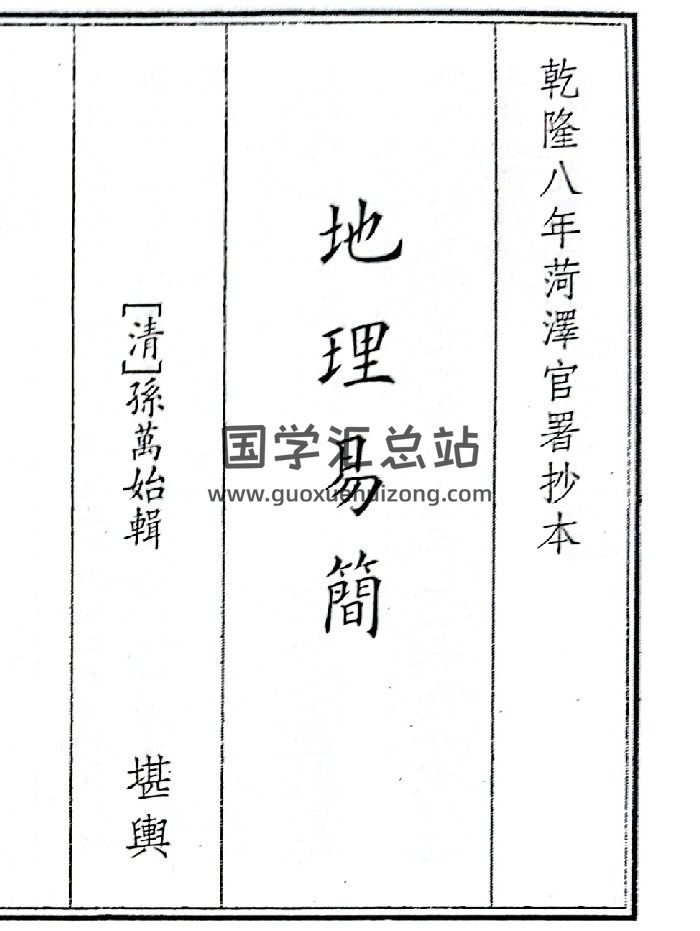 乾隆八年菏澤官署抄本
地理易簡
[清]孫萬始輯
堪輿
国学汇总站
www.guoxuehuizong.com